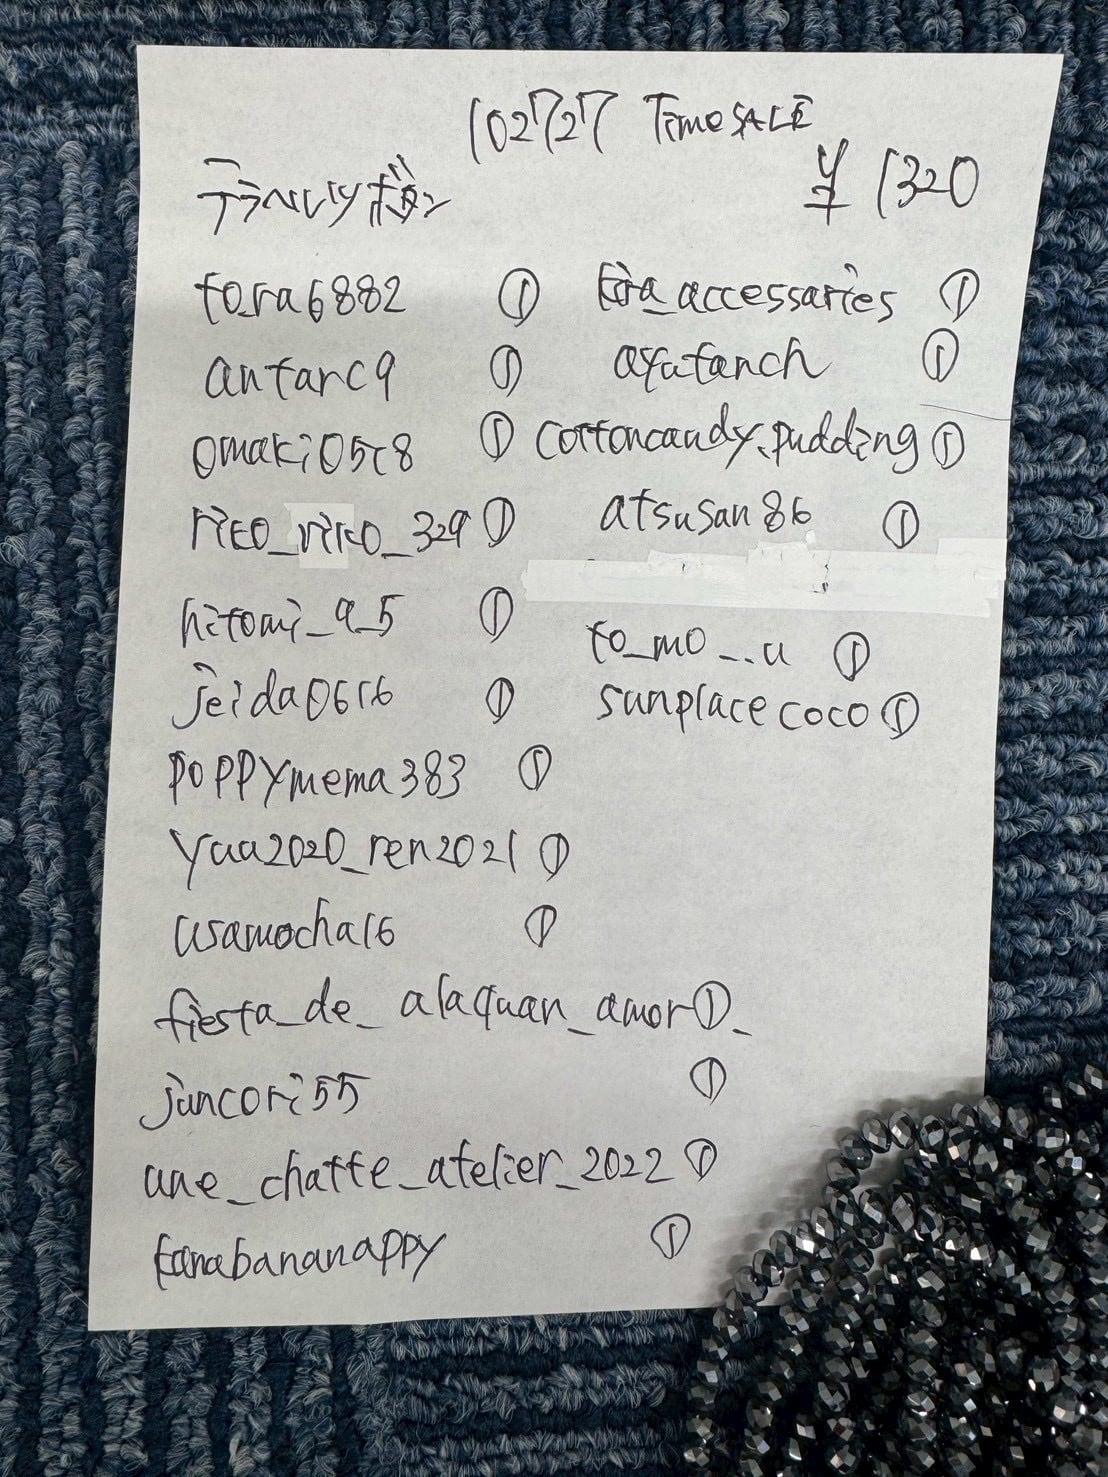 102727 TimeSALE
¥1320
tora6882 ①
antarc9 ①
omaki0518 ①
rico_rico_329 ①
hitomi_9_5 ①
jeida0616 ①
poppymema383 ①
yaa2020_ren2021 ①
usamocha16 ①
fiesta_de_alaquan_amor①_
juncori55 ①
une_chatte_atelier_2022 ①
kanabananappy ①
accessaries ①
ayutanch ①
cottoncandy.pudding ①
atsusan86 ①
to_mo_..u ①
sunplacecoco ①